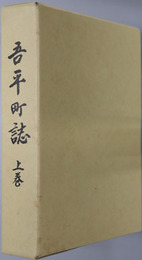 吾平町誌 上巻